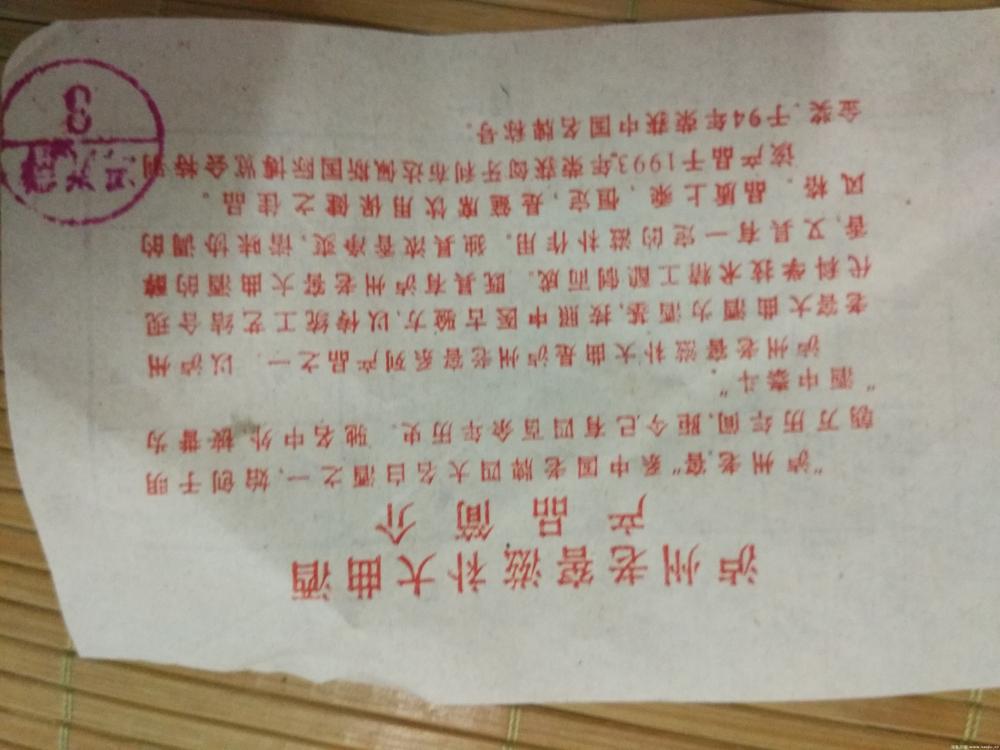 泸州老窖滋补大曲酒
产品简介
“泸州老窖”系中国老牌四大名白酒之一,始创于明
朝万历年间,距今已有四百余年历史. 驰名中外 被誉为
“酒中泰斗”.
泸州老窖滋补大曲是泸州老窖系列产品之一. 以泸州
老窖大曲酒为酒基,按照中医古验方,以传统工艺结合现
代科学技术精工配制而成. 既具有泸州老窖大曲酒的醇
香,又具有一定的滋补作用. 独具浓香净爽,谐味协调的
风格. 品质上乘,恒定,是席筵饮用保健之佳品.
该产品于1993年荣获匈牙利布达佩斯国际博览会特别
金奖.于94年荣获中国名牌称号.
3